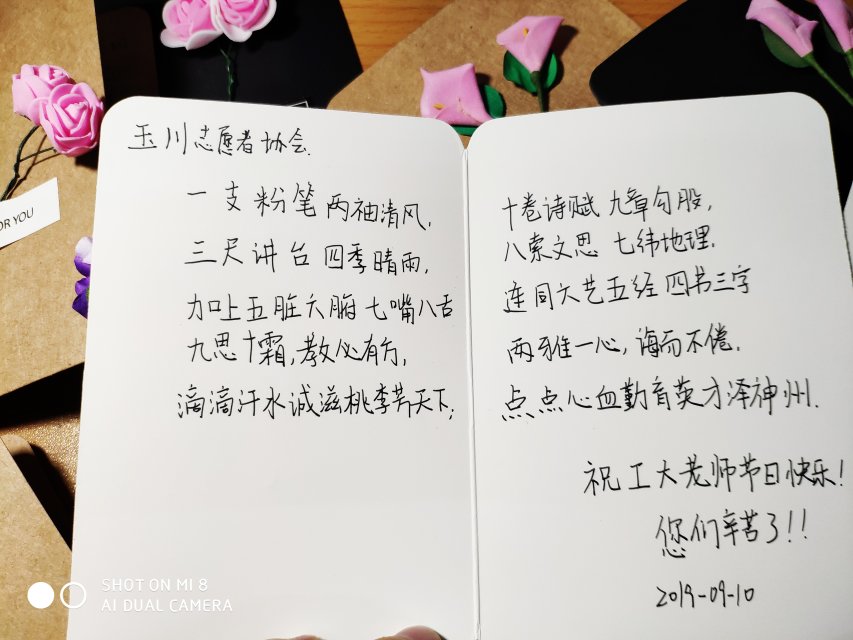 玉川志愿者协会.
一支粉笔两袖清风,
三尺讲台四季晴雨,
加上五脏六腑七嘴八舌
九思十霜,教必有方,
滴滴汗水诚滋桃李芳天下;
十卷诗赋九章勾股,
八索文思七纬地理.
连同六艺五经四书三字
两雅一心,诲而不倦.
点点心血勤育英才泽神州.
祝工大老师节日快乐!
您们辛苦了!!
2019-09-10
OR YOU
SHOT ON MI 8
AI DUAL CAMERA